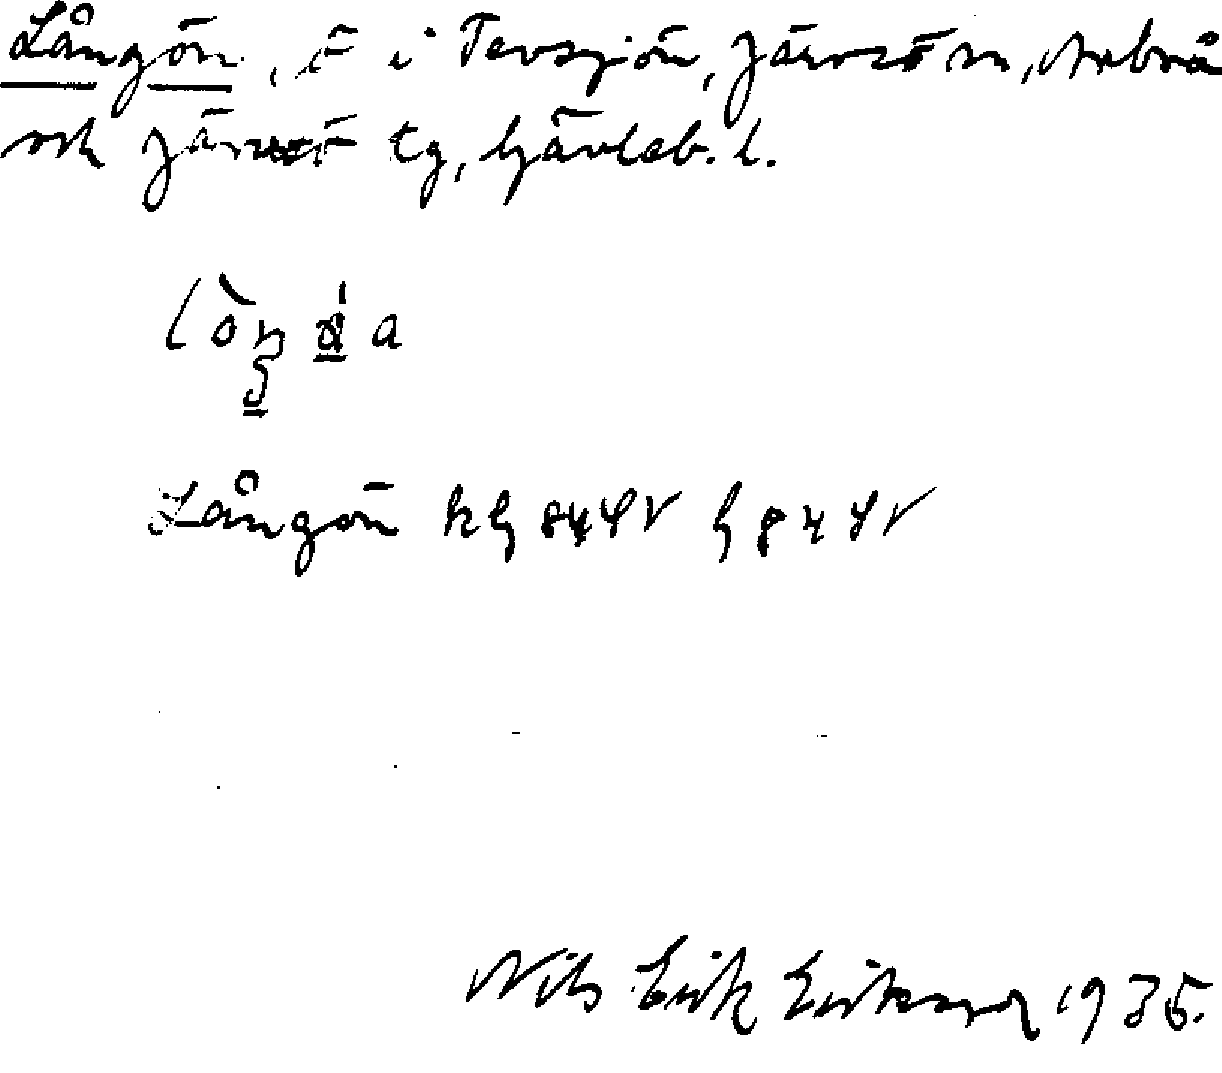 Långön, ö i Tevsjön, Järvsö sn, Arbrå
och Järvsö tg, Gävleb. l.
Långön
Nils Erik Eriksson 1935.